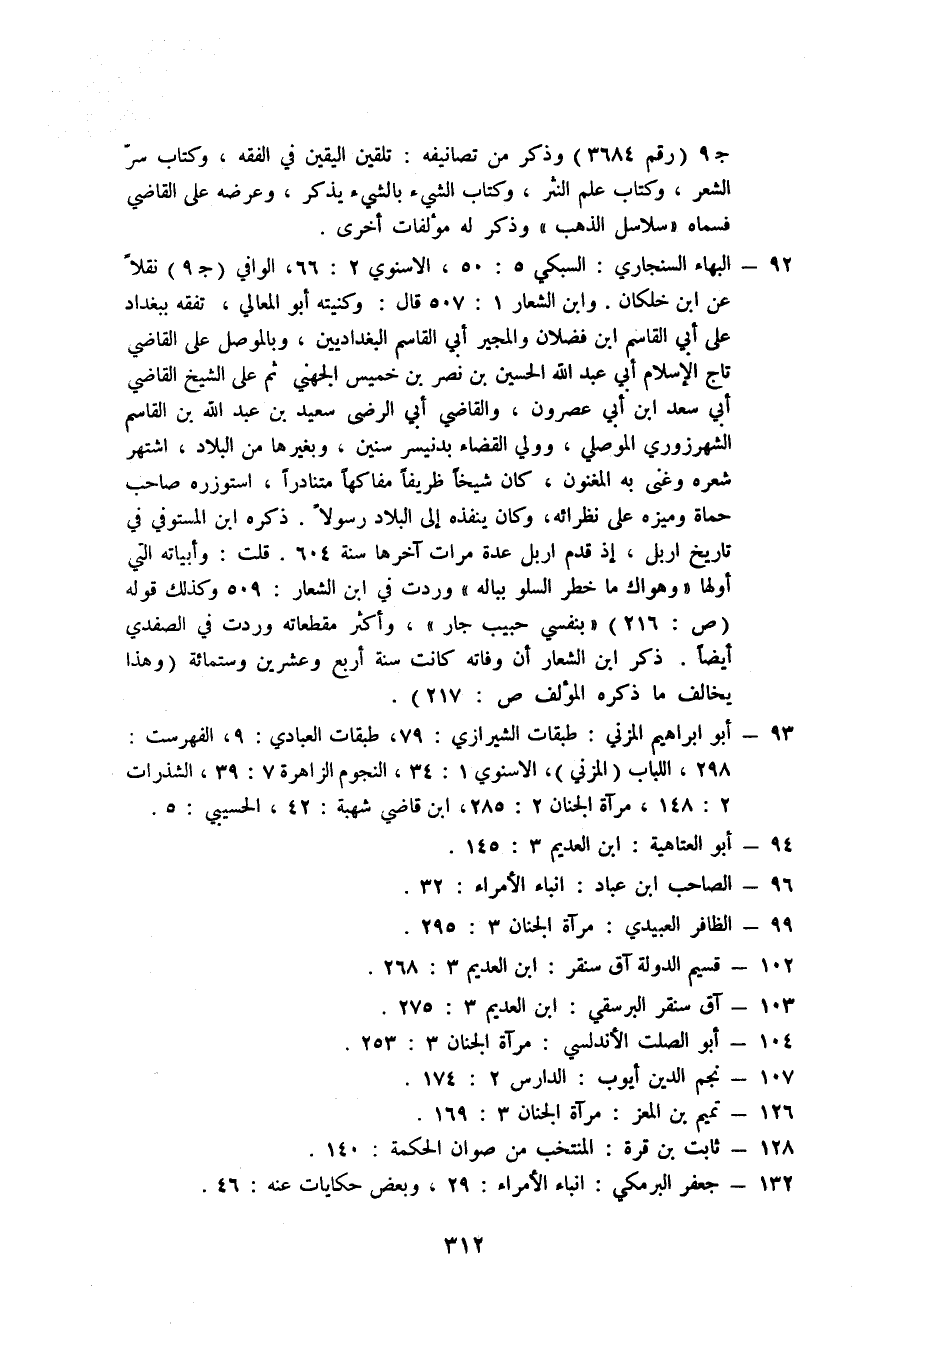 ج٩ (رقم ٣٦٨٤) وذكر من تصانيفه : تلقين اليقين في الفقه ، وكتاب سرّ
الشعر ، وكتاب علم النثر ، وكتاب الشيء بالشيء يذكر ، وعرضه على القاضي
فسماه «سلاسل الذهب» وذكر له مؤلفات أخرى .
٩٢ – البهاء السنجاري : السبكي ٥ : ٥٠ ، الاسنوي ٢ : ٦٦، الوافي (ج٩) نقلاً
عن ابن خلكان . وابن الشعار ١ : ٥٠٧ قال : وكنيته أبو المعالي ، تفقه ببغداد
على أبي القاسم ابن فضلان والمجير أبي القاسم البغداديين ، وبالموصل على القاضي
تاج الإسلام أبي عبد الله الحسين بن نصر بن خميس الجهني ثم على الشيخ القاضي
أبي سعد ابن أبي عصرون ، والقاضي أبي الرضى سعيد بن عبد الله بن القاسم
الشهرزوري الموصلي ، وولي القضاء بدنيسر سنين ، وبغيرها من البلاد ، اشتهر
شعره وغنى به المغنون ، كان شيخاً ظريفاً مفاكهاً متنادراً ، استوزره صاحب
حماة وميزه على نظرائه، وكان ينفذه إلى البلاد رسولاً . ذكره ابن المستوفي في
تاريخ اربل ، إذ قدم اربل عدة مرات آخرها سنة ٦٠٤ . قلت : وأبياته التي
أولها «وهواك ما خطر السلو بباله» وردت في ابن الشعار : ٥٠٩ وكذلك قوله
(ص : ٢١٦) «بنفسي حبيب جار» ، وأكثر مقطعاته وردت في الصفدي
أيضاً . ذكر ابن الشعار أن وفاته كانت سنة أربع وعشرين وستمائة (وهذا
يخالف ما ذكره المؤلف ص : ٢١٧) .
٩٣ – أبو ابراهيم المزني : طبقات الشيرازي : ٧٩، طبقات العبادي : ٩، الفهرست :
٢٩٨ ، اللباب (المزني)، الاسنوي ١ : ٣٤ ، النجوم الزاهرة ٧ : ٣٩ ، الشذرات
٢ : ١٤٨ ، مرآة الجنان ٢ : ٢٨٥، ابن قاضي شهبة : ٤٢ ، الحسيبي : ٥ .
٩٤ – أبو العتاهية : ابن العديم ٣ : ١٤٥ .
٩٦ – الصاحب ابن عباد : انباء الأمراء : ٣٢ .
٩٩ – الظافر العبيدي : مرآة الجنان ٣ : ٢٩٥ .
١٠٢ – قسيم الدولة آق سنقر : ابن العديم ٣ : ٢٦٨ .
١٠٣ – آق سنقر البرسقي : ابن العديم ٣ : ٢٧٥ .
١٠٤ – أبو الصلت الأندلسي : مرآة الجنان ٣ : ٢٥٣ .
١٠٧ – نجم الدين أيوب : الدارس ٢ : ١٧٤ .
١٢٦ – تميم بن المعز : مرآة الجنان ٣ : ١٦٩ .
١٢٨ – ثابت بن قرة : المنتخب من صوان الحكمة : ١٤٠ .
١٣٢ – جعفر البرمكي : انباء الأمراء : ٢٩ ، وبعض حكايات عنه : ٤٦ .
٣١٢